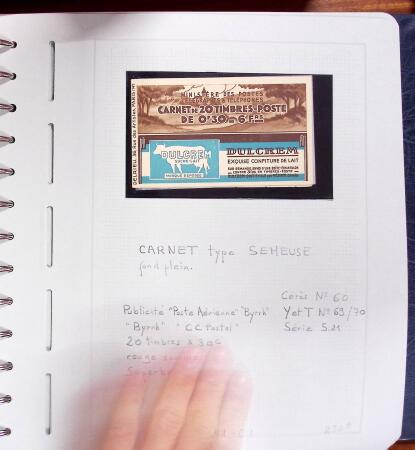 MINISTÈRE DES POSTES
TÉLÉGRAPHES & TÉLÉPHONES
CARNET DE 20 TIMBRES-POSTE
DE 0F30 = 6 FRS
DULCREM
SUCRE LAIT
MARQUE DÉPOSÉE
DULCREM
EXQUISE CONFITURE DE LAIT
CARNET type SEMEUSE
fond plein.
Cérès N° 60
Publicité "Poste Aérienne" "Byrrh"
Y et T N° 63/70
"Byrrh" "CC Postal"
Série S.21
20 timbres x 30c
rouge
Superbe